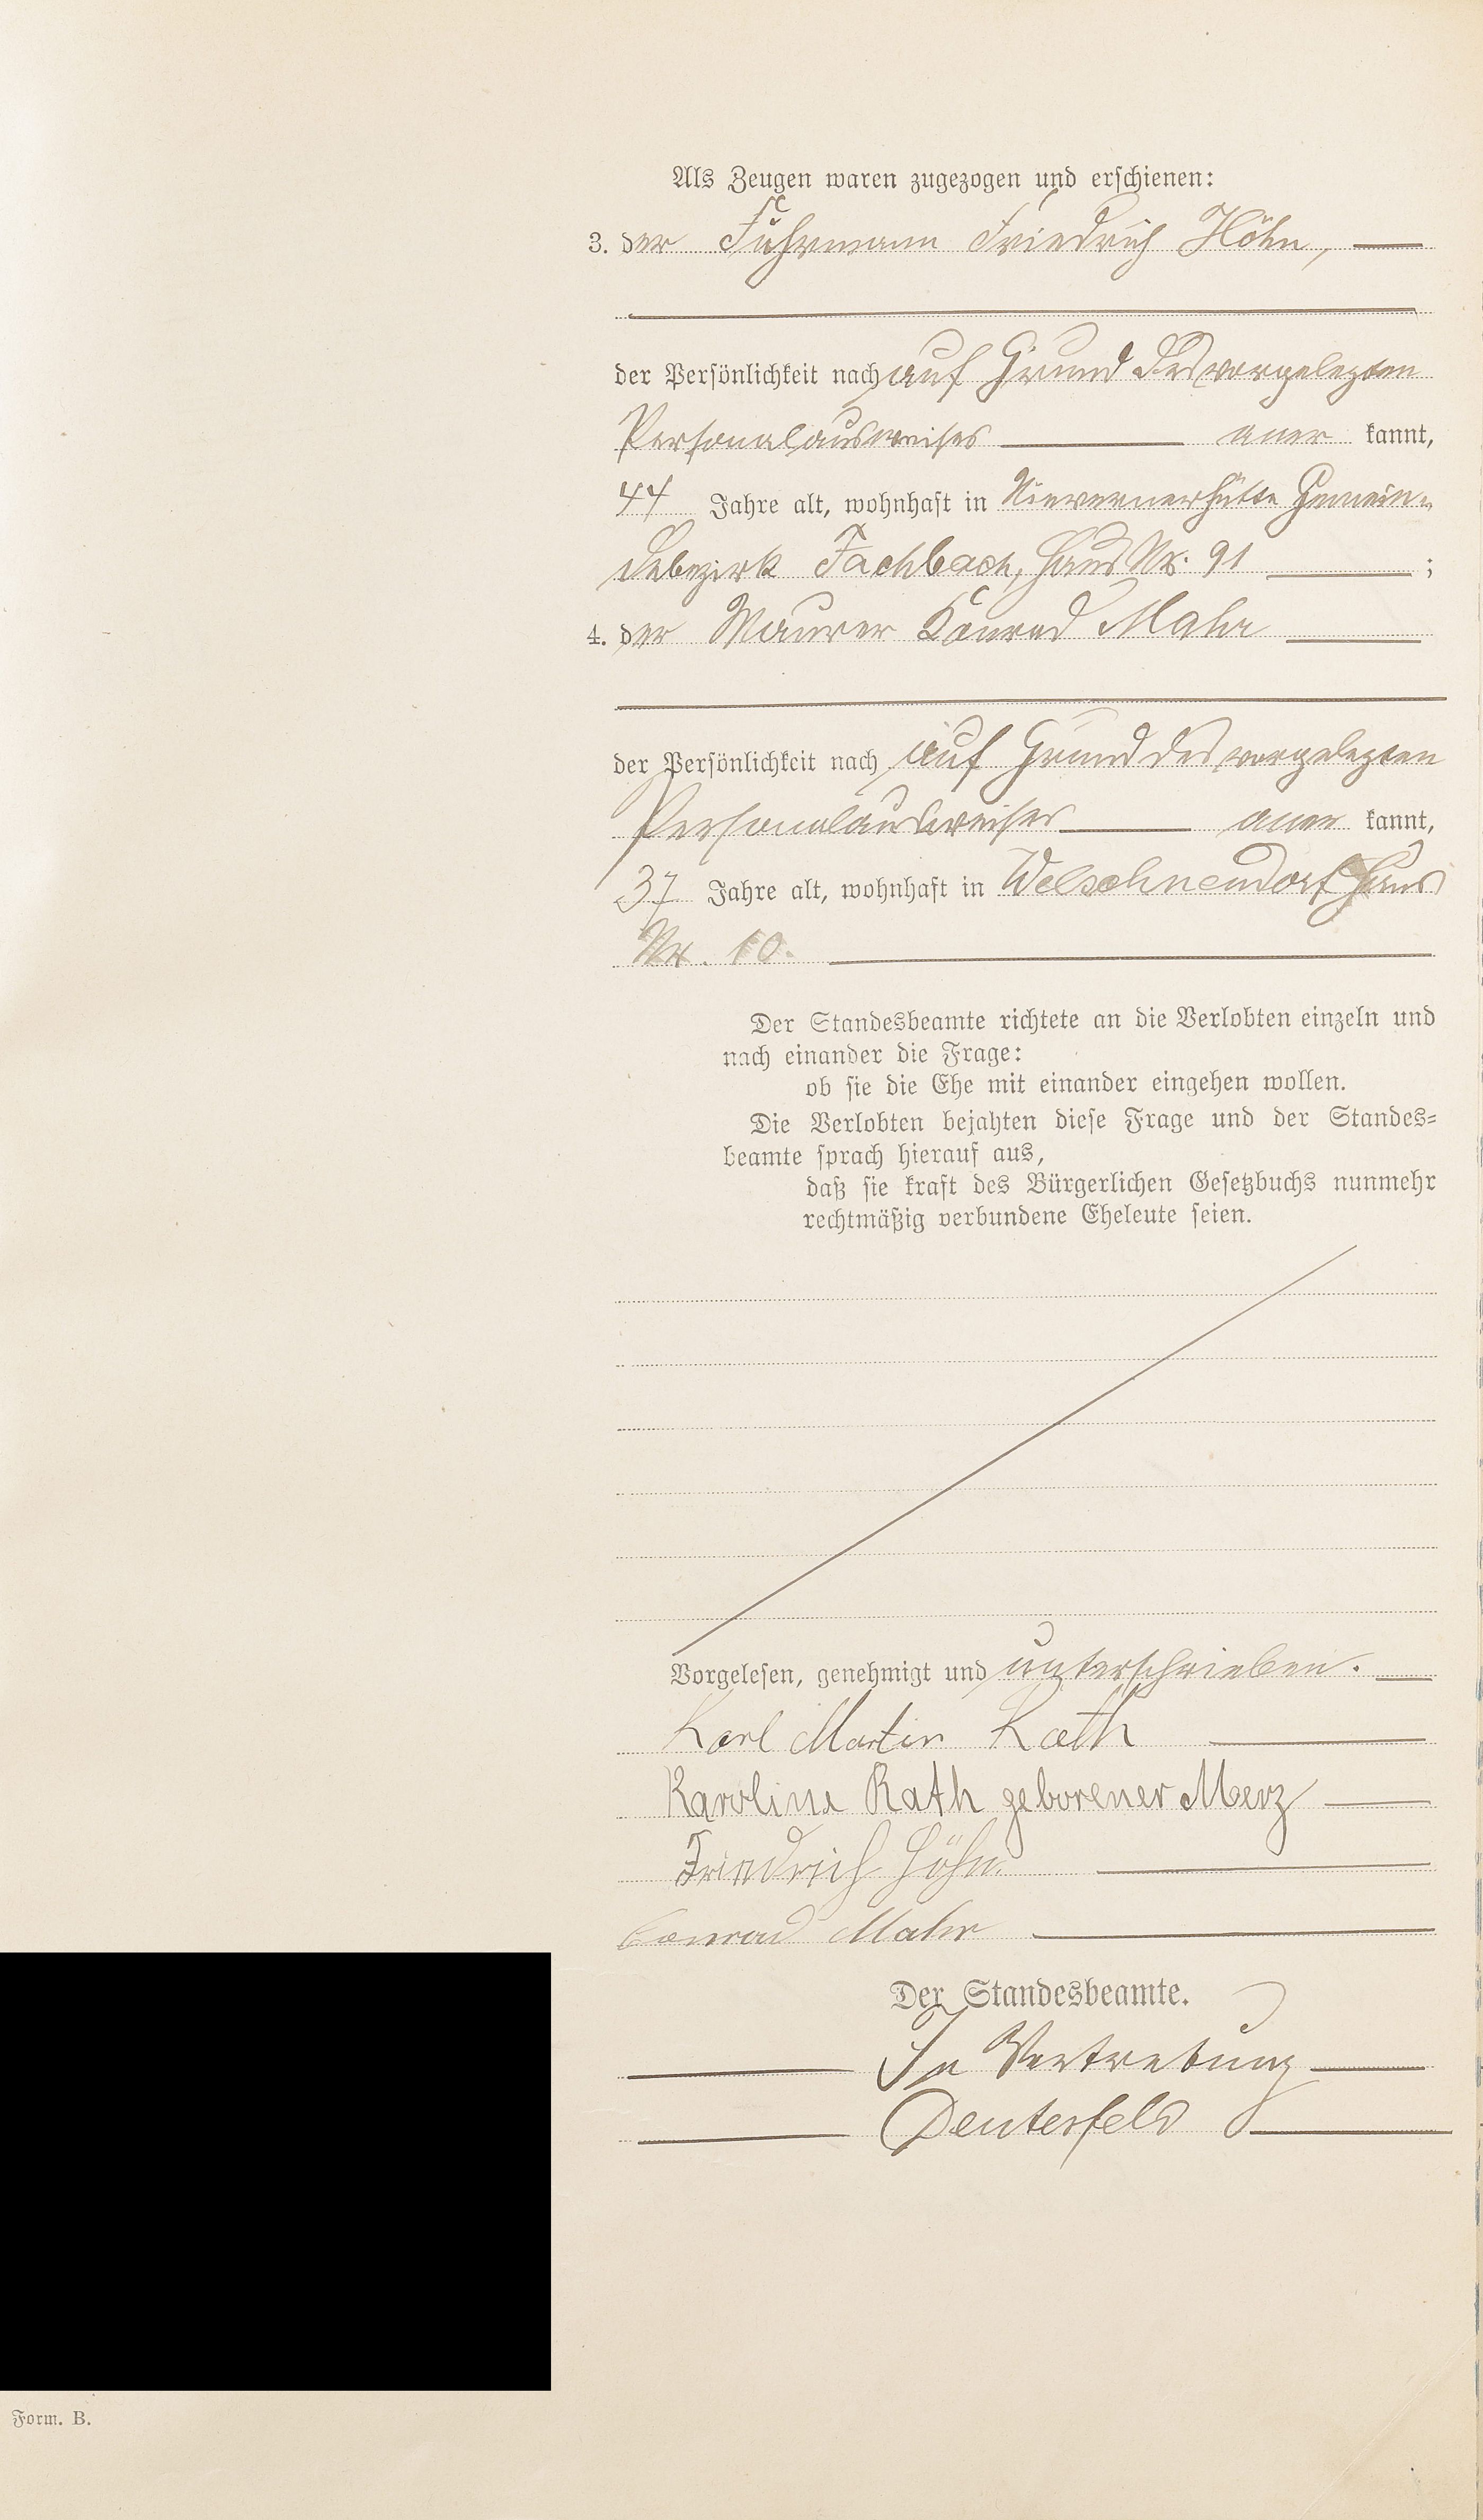 Als Zeugen waren zugezogen und erschienen:
3. der Fuhrmann Friedrich Höhn,
der Persönlichkeit nach auf Grund des vorgelegten
Personalausweises aner kannt,
44 Jahre alt, wohnhaft in Nievernerhütte Gemein-
debezirk Fachbach, Haus Nr. 91 ;
4. der Maurer Konrad Mahr
der Persönlichkeit nach auf Grund des vorgelegten
Personalausweises aner kannt,
37 Jahre alt, wohnhaft in Welschneudorf Haus
Nr. 10.
Der Standesbeamte richtete an die Verlobten einzeln und
nach einander die Frage:
ob sie die Ehe mit einander eingehen wollen.
Die Verlobten bejahten diese Frage und der Standes=
beamte sprach hierauf aus,
daß sie kraft des Bürgerlichen Gesetzbuchs nunmehr
rechtmäßig verbundene Eheleute seien.
Vorgelesen, genehmigt und unterschrieben.
Karl Martin Rath
Karoline Rath geborener Merz
Friedrich Höhn.
Conrad Mahr
Der Standesbeamte.
In Vertretung
Deutesfeld
Form. B.